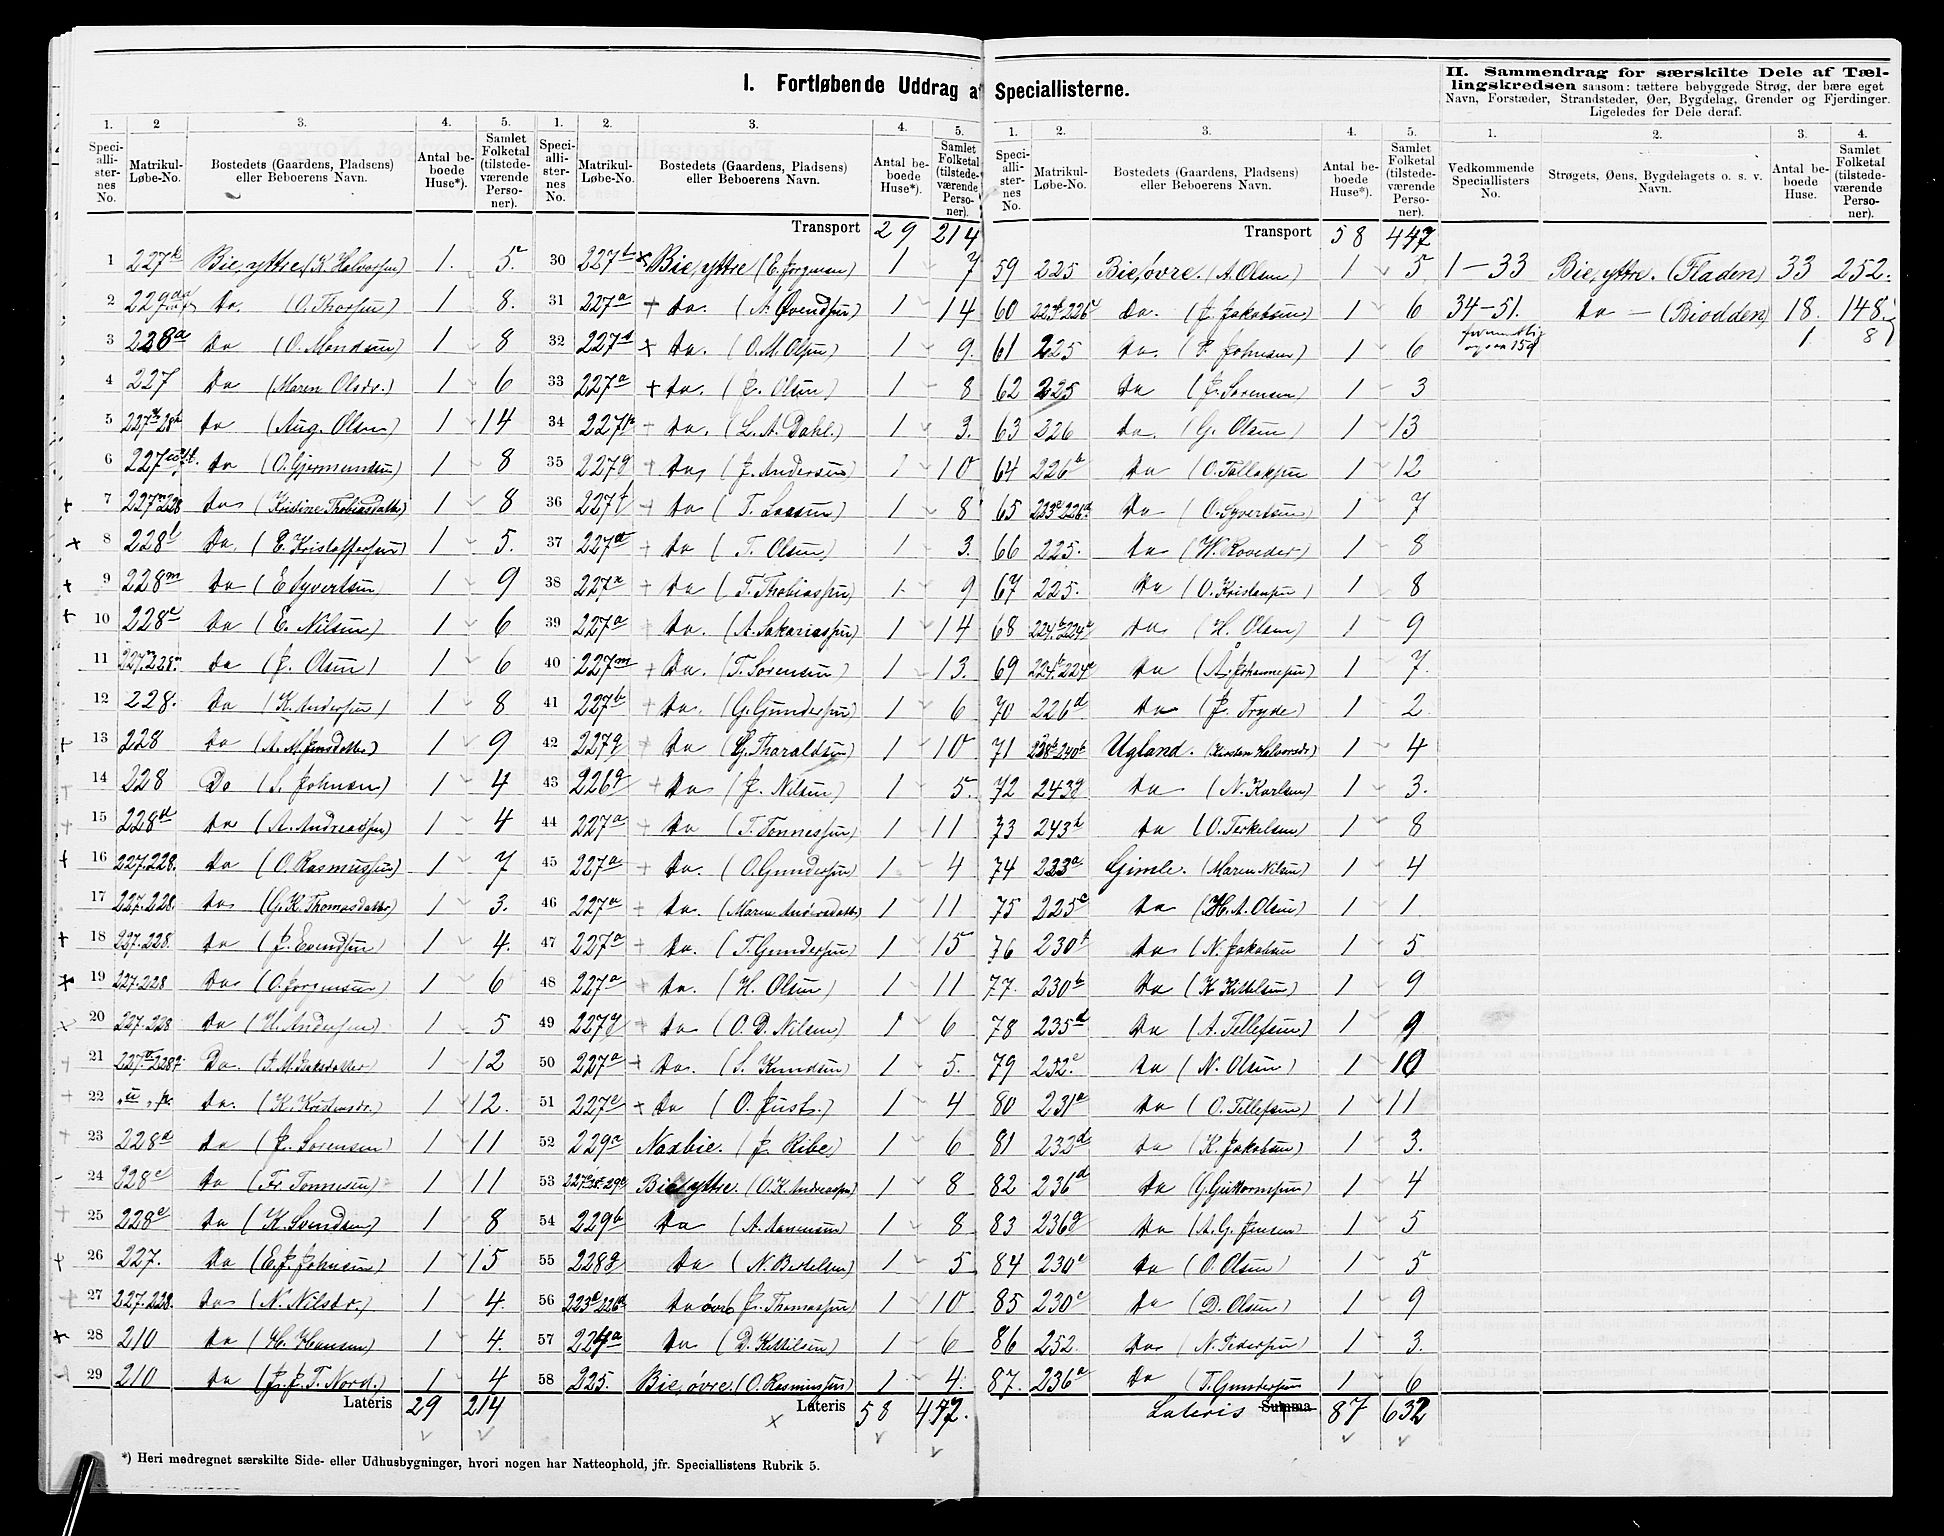 I. Fortløbende Uddrag af Speciallisterne.
II. Sammendrag for særskilte Dele af Tæl-
lingskredsen saasom: tættere bebyggede Strøg, der bære eget
Navn, Forstæder, Strandsteder, Øer, Bygdelag, Grender og Fjerdinger.
Ligeledes for Dele deraf.
1. 2 3. 4. 5.
Speci-alli-ster-nes No. Matrikul-Løbe-No. Bostedets (Gaardens, Pladsens) eller Beboerens Navn. Antal be-boede Huse*). Samlet Folketal (tilstede-værende Perso-ner).
1 227k Bie, yttre (K. Halvorsen) 1. 5.
2 229 Do. (O. Thorsen) 1 8.
3 228a Do (O. Mondsen) 1 8
4 227 Do (Maren Olsdr.) 1 6
5 Do (Aug. Olsen) 1 14
6 227 Do (O. Gjermundsen) 1 8
7 227n 228 Do (Kristine Thobiasdatter) 1 8
8 228l Do. (E. Kristoffersen) 1 5.
9 228m Do (E Syvertsen) 1 9
10 228c Do (E. Nilsen) 1 6
11 Do (J. Olsen) 1 6
12 228. Do (K. Andersen) 1 8
13 228 Do (A. M. Jensdatter) 1 9
14 228 Do (S. Johnsen) 1 4
15 228d Do (A. Andreassen) 1 4
16 227.228. Do (O. Rasmussen) 1 7
17 227.228. Do (G. K. Thomasdatter) 1 3.
18 227.228. Do (J. Evendsen) 1 4.
19 227.228 Do (O. Jørgensen) 1 6
20 227.228 Do (H. Andersen) 1 5
21 Do. 1 12
22 Do. (K. Kristensdr.) 1 12.
23 228d Do (J. Sørensen) 1 11
24 228c Do (Fr. Tønnesen) 1 11
25 228e Do (K. Svendsen) 1 8
26 227. Do (E. J. Johnsen) 1 15
27 227.228. Do (N. Nilsdr.) 1 4.
28 210 Do (H. Hansen) 1 4.
29 210 Do (J. J. T. Nord.) 1 4
Lateris 29 214
1. 2. 3. 4. 5.
Speci-alli-ster-nes No. Matrikul-Løbe-No. Bostedets (Gaardens, Pladsens) eller Beboerens Navn. Antal be-boede Huse*). Samlet Folketal (tilstede-værende Perso-ner).
Transport 29 214
30 227b Bie, yttre (E. Jørgensen) 1 7
31 227a Do. (A. Øvendsen) 1 14
32 227d Do. (O. M. Olsen) 1 9.
33 227a Do. (J. Olsen) 1 8
34 Do. (L. A. Dahl.) 1 3.
35 227g Do, (J. Andersen) 1 10
36 227f Do (T. Larsen) 1 8
37 Do (T. Olsen) 1 3.
38 227x Do (T. Thobiassen) 1. 9
39 227a Do. (A. Sakariassen) 1 14
40 227m Do. (T. Sørensen) 1 13.
41 227b Do. (G. Gundersen) 1 6
42 227g Do (G. Tharaldsen) 1 10
43 226g Do (J. Nilsen) 1 5.
44 227a Do (T. Tønnessen) 1 11
45 227a Do. (O. Gundersen) 1 4
46 227a Do. (Maren Andersdatter) 1 11
47 227a Do. (T. Gundersen) 1 15
48 227a Do. (H. Olsen) 1 11
49 227g Do (O. D. Nilsen) 1 6
50 227a Do. (S. Knudsen) 1 5.
51 227e Do (O. Just.) 1 4
52 229a Naxbie. (J. Ribe) 1 6
53 Bie, yttre. (O. K. Andreassen) 1 8
54 229b Do (A. Aanensen) 1 8
55 228g Do (N. Bertelsen) 1 5
56 Do øvre (J. Thomassen) 1 10
57 224a Do (D. Kittilsen) 1 6
58 225. Bie, øvre. (O. Rasmussen) 1 4.
Lateris 58 447.
1. 2. 3. 4. 5.
Speci-alli-ster-nes No. Matrikul-Løbe-No. Bostedets (Gaardens, Pladsens) eller Beboerens Navn. Antal be-boede Huse*). Samlet Folketal (tilstede-værende Perso-ner).
Transport 58 447
59 225 Bie, øvre. (A. Olsen) 1 5
60 Do. (J. Jakobsen) 1 6
61 225 Do. (P. Johnsen) 1 6
62 225 Do (J. Sørensen) 1 3
63 226 Do. (G. Olsen) 1 13
64 226b Do (O. Tallaksen 1 12
65 Do (O. Syvertsen) 1 7
66 225. Do (W. Roveder) 1 8
67 225. Do (O. Kristensen) 1 8
68 Do (H. Olsen) 1 9
69 Do (A. Johannesen) 1 7.
70 226d Do (J. Tryde) 1 2.
71 238b 240b Ugland. (Kirsten Halvorsdr.) 1 4
72 243g Do (N. Karlsen) 1 3.
73 243h Do (O. Terkelsen) 1 8
74 223a Gimle. (Maren Nilsen) 1 4
75 225c Do (H. A. Olsen) 1 1.
76 230b Do (N. Jakobsen 1 5
77. 230b Do (K Kittelsen) 1 9
78 235d Do (A. Tellefsen) 1 9
79 252. Do (N. Olsen) 1 10
80 231a Do (O. Tellefsen) 1 11
81 232d Do (K. Jakobsen) 1 3.
82 236d Do (G. Guttormsen) 1 4
83 236g Do (A. G. Jensen) 1 5
84 230c Do (O. Olsen) 1 5
85 230c Do (D. Olsen) 1 9
86 252. Do (N. Pedersen) 1 3.
87. 236a Do (T. Gundersen 1 6
Lateris Summa 87 632
1. 2. 3. 4.
Vedkommende Speciallisters No. Strøgets, Øens, Bygdelagets o. s. v. Navn. Antal be-boede Huse. Samlet Folketal (tilstede-værende Perso-ner).
1–33 Bie, yttre. (Fladen) 33 252.
34–51. Do — (Biodden) 18. 148.
1 8
*) Heri medregnet særskilte Side- eller Udhusbygninger, hvori nogen har Natteophold, jfr. Speciallistens Rubrik 5.